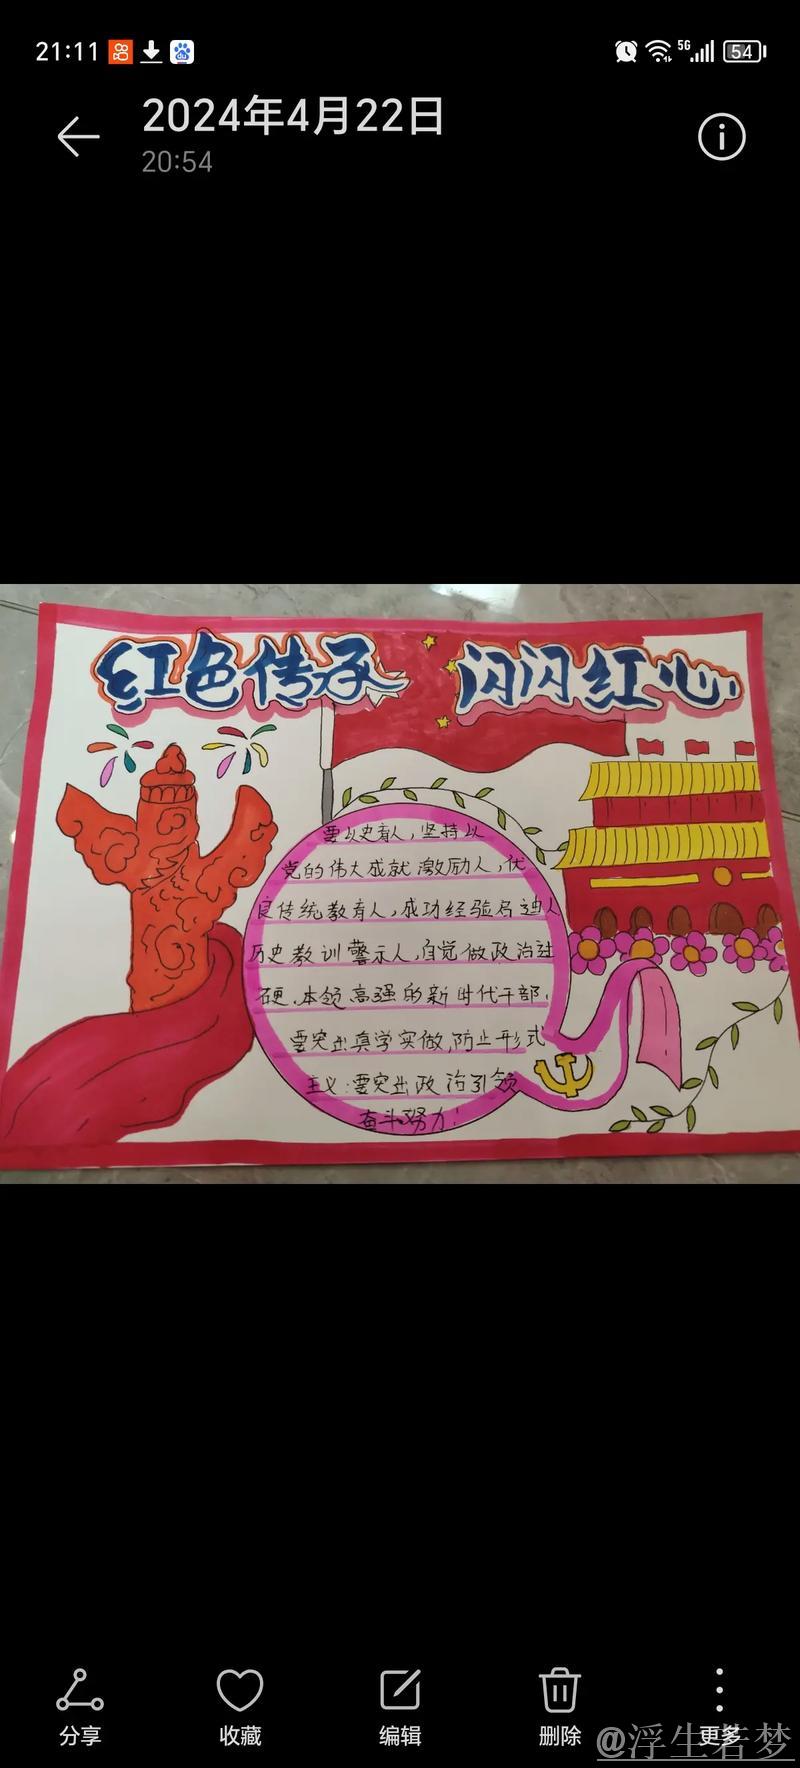 21:11
5G
54
2024年4月22日
20:54
红色传承 闪闪红心
要以史育人，坚持以
党的伟大成就激励人，优
良传统教育人，成功经验启迪人
历史教训警示人，自觉做政治过
硬、本领高强的新时代干部，
要突出真学实做，防止形式
主义：要突出政治引领
奋斗努力！
分享
收藏
编辑
删除
更多
@浮生若梦